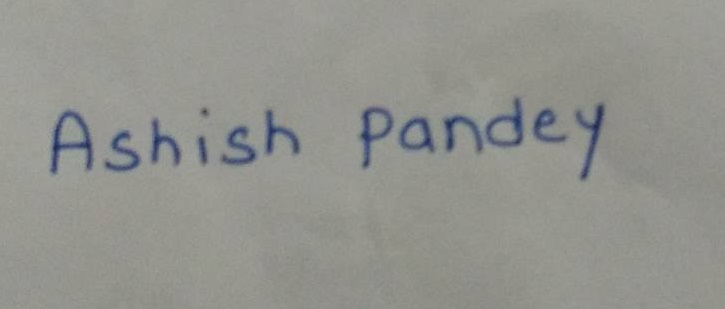 Ashish Pandey